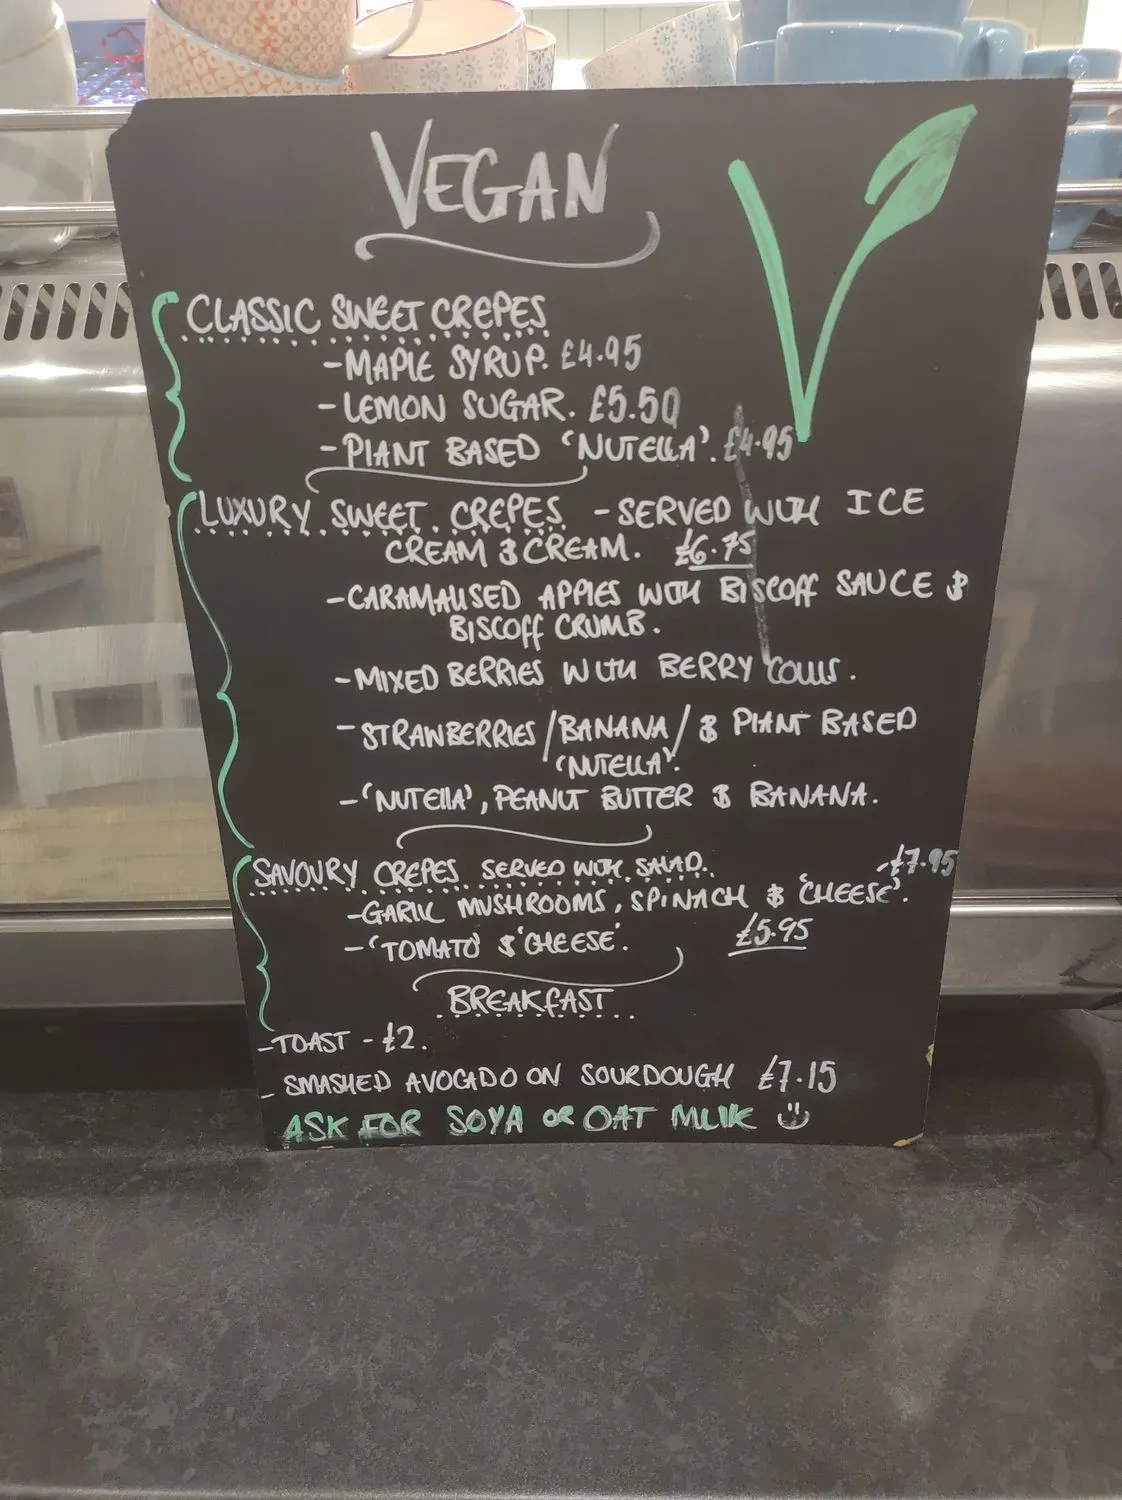 VEGAN
CLASSIC SWEET CREPES
- MAPLE SYRUP. £4.95
- LEMON SUGAR. £5.50
- PLANT BASED 'NUTELLA'. £4.95
LUXURY SWEET CREPES - SERVED WITH ICE
CREAM & CREAM. £6.75
- CARAMALISED APPLES WITH BISCOFF SAUCE &
BISCOFF CRUMB.
- MIXED BERRIES WITH BERRY COULIS.
- STRAWBERRIES/BANANA/& PLANT BASED
'NUTELLA'.
- 'NUTELLA', PEANUT BUTTER & BANANA.
SAVOURY CREPES SERVED WITH SALAD. - £7.95
- GARLIC MUSHROOMS, SPINACH & 'CHEESE'.
- 'TOMATO' & 'CHEESE'. £5.95
BREAKFAST
- TOAST - £2.
- SMASHED AVOCADO ON SOURDOUGH £7.15
ASK FOR SOYA OR OAT MILK